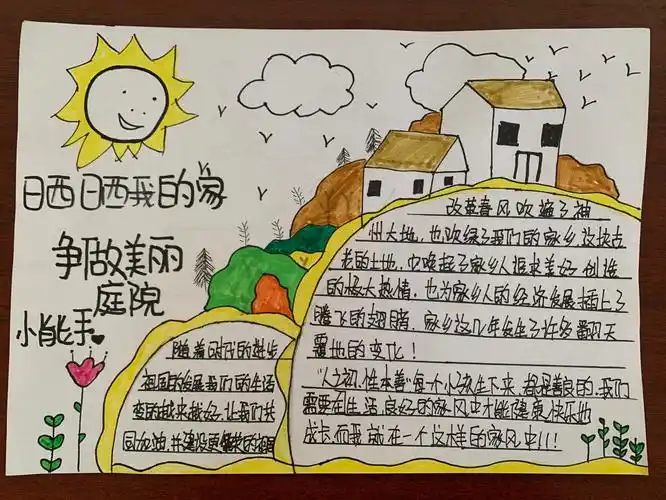 日西日西我的家
争做美丽
庭院
小能手
随着时代的进步
祖国的发展我们的生活
变的越来越好,让我们共
同加油,并建设更繁荣的祖国
改革春风吹遍了神
州大地,也吹绿了我们的家乡这块古
老的土地,也唤起了家乡人追求美好创造
的极大热情,也为家乡人的经济发展插上了
腾飞的翅膀,家乡这几年发生了许多翻天
覆地的变化!
"人之初,性本善"每个小孩生下来,都是善良的,我们
需要在生活良好的家风中才能健康快乐地
成长而我就在一个这样的家风中!!!